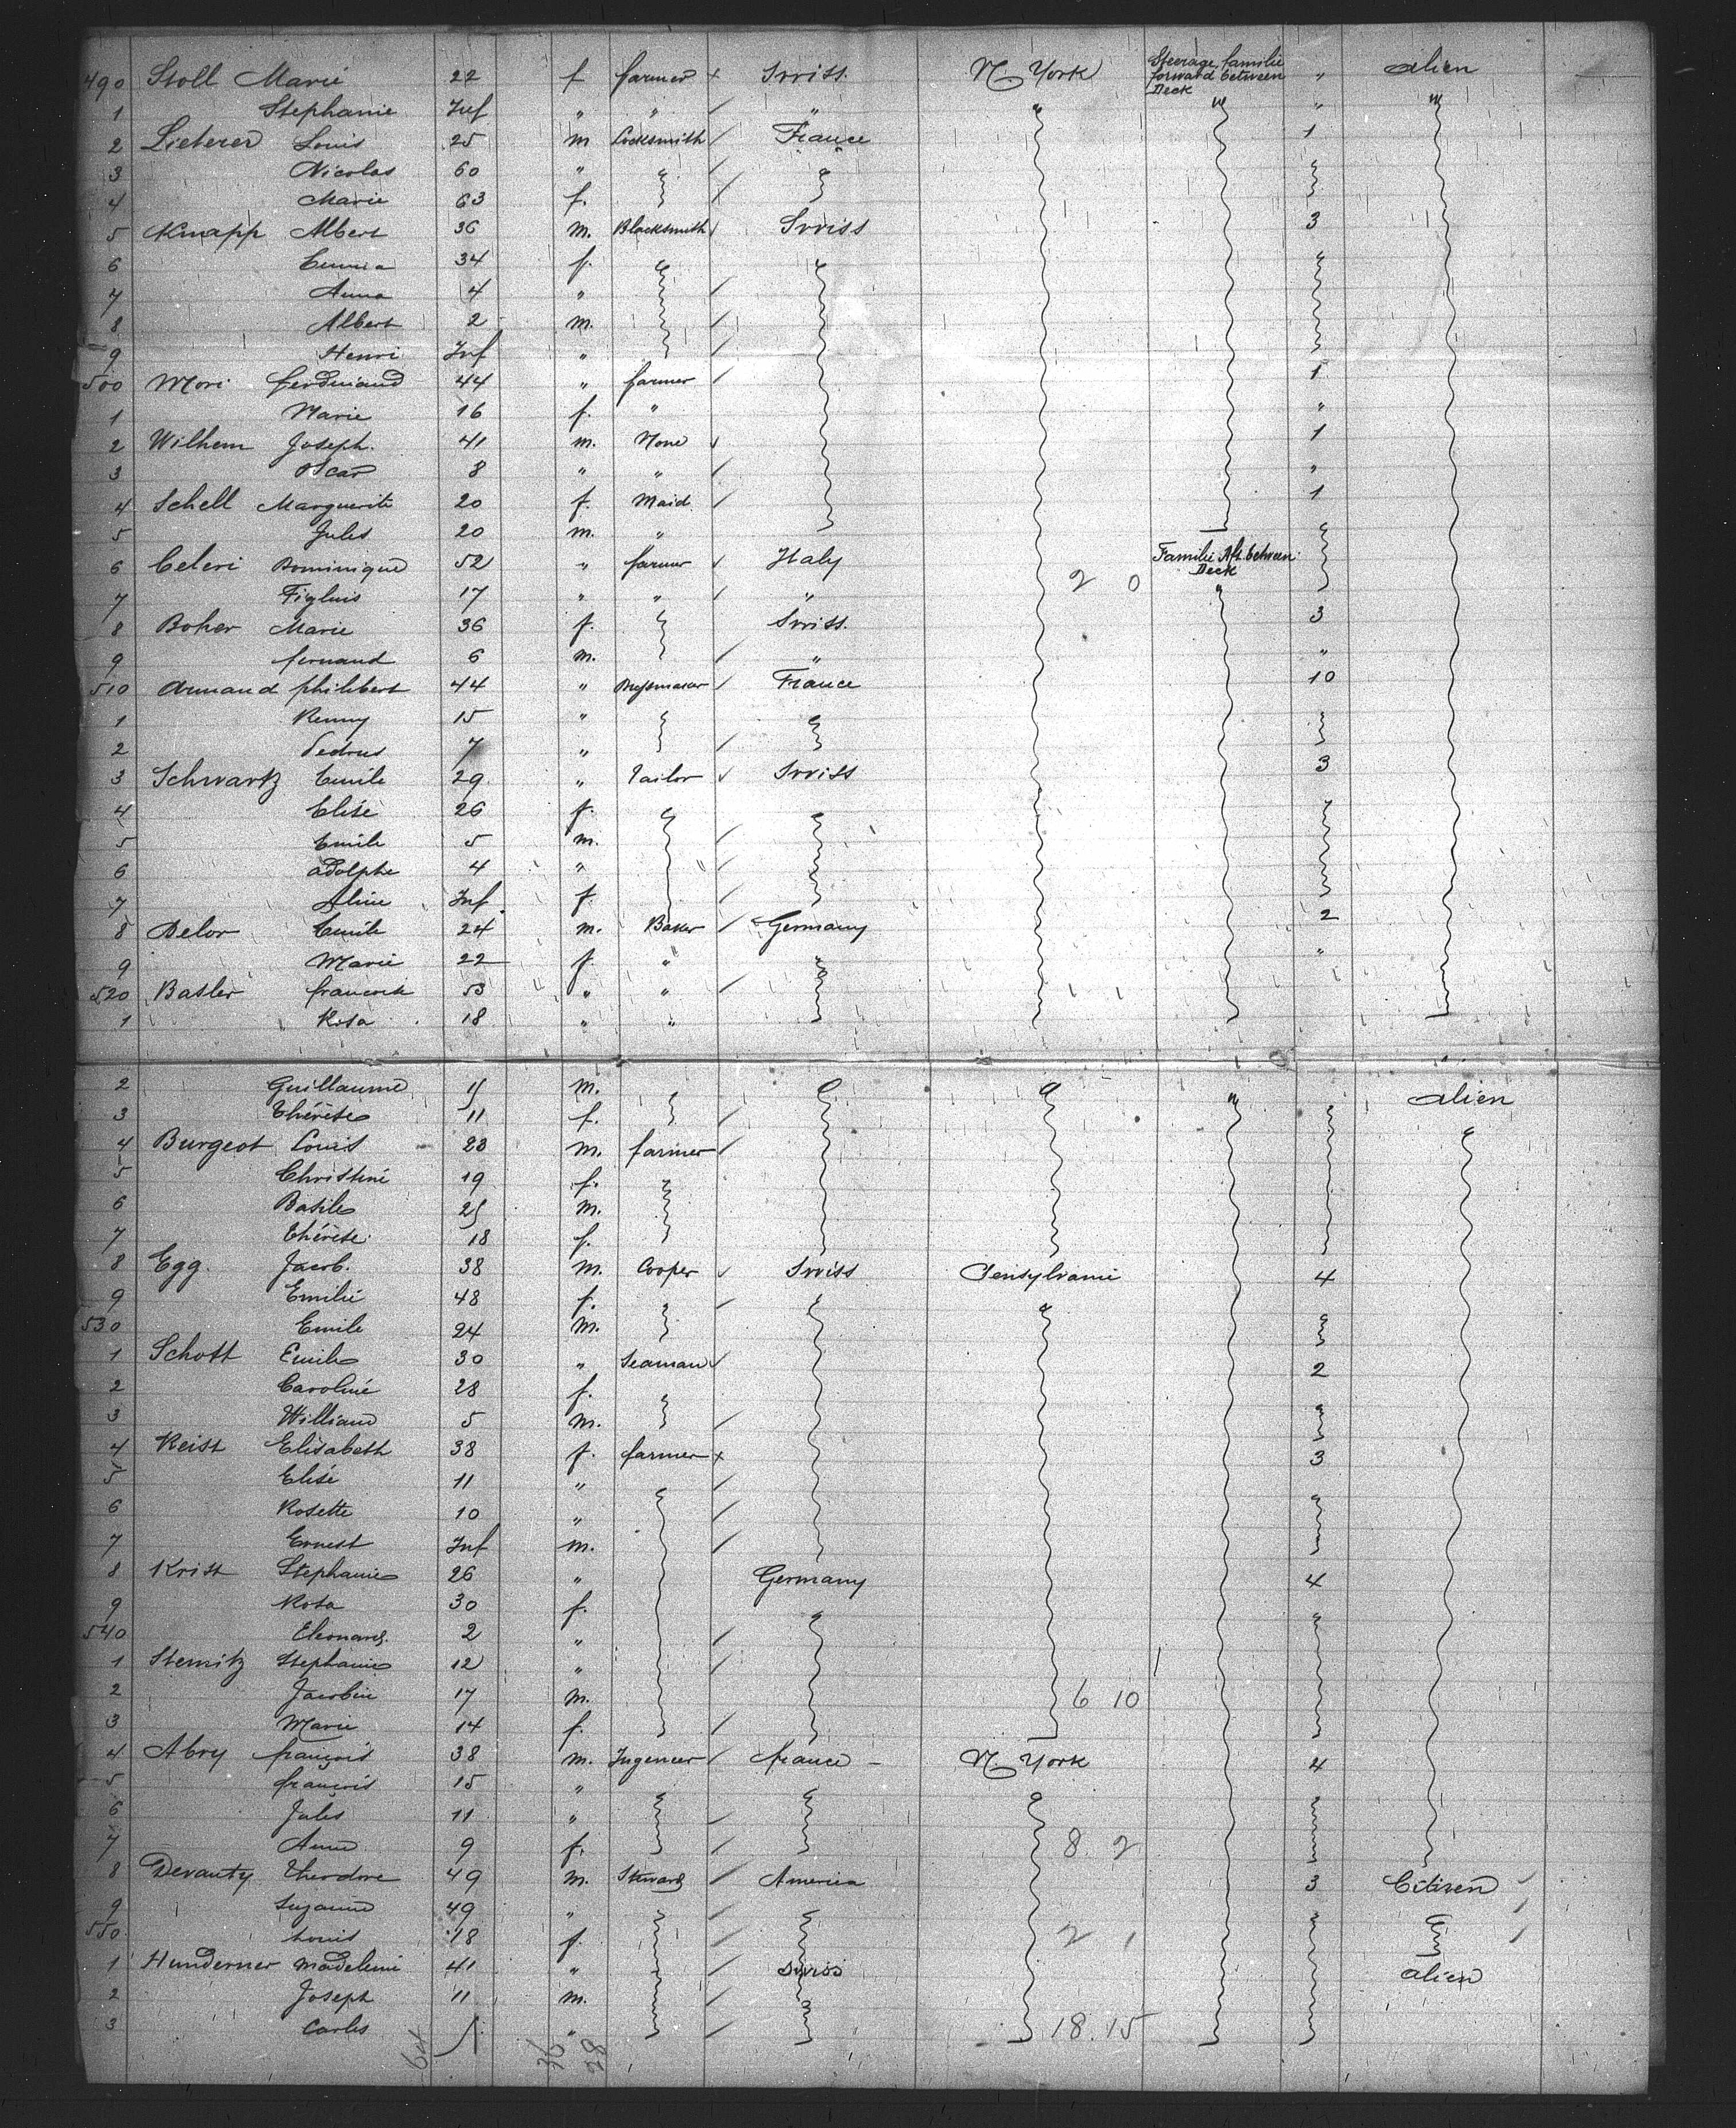 490 Stoll Marie 22 f farmer x Swiss. N. York Steerage familie forward between Deck " alien
1 Stephanie Inf " " / " " " " "
2 Lieterer Louis 25 m Locksmith / France 1
3 Nicolas 60 " /
4 Marie 63 f. /
5 Knapp Albert 36 m. Blacksmith Swiss 3
6 Emma 34 f.
7 Anna 4 " /
8 Albert 2 m. /
9 Henri Inf " /
500 Mori ferdinand 44 " farmer / 1
1 Marie 16 f. " "
2 Wilhem Joseph. 41 m. None 1
3 Oscar 8 " " / "
4 Schell Marguerite 20 f. Maid / 1
5 Jules 20 m. "
6 Celeri Dominique 52 " farmer Italy Familie Aft. between Deck
2 0
7 17 " " / " "
8 Boher Marie 36 f. Swiss. 3
9 fernand 6 m. / " "
510 Armand philibert 44 " / France 10
1 Remy 15 "
2 7 " /
3 Schwartz Emile 29 " Tailor Swiss 3
4 Elise 26 f.
5 Emile 5 m. /
6 adolphe 4 " /
7 Aline Inf. f. /
8 Delor Emile 24 m. Baker / Germany 2
9 Marie 22 f. " " "
520 Basler 53 " " /
1 Rosa 18 " "
2 Guillaume 15 m. " alien
3 Thérèse 11 f. /
4 Burgeot Louis 23 m. farmer /
5 Christine 19 f.
6 Basile 25 m.
7 Thérèse 18 f.
8 Egg. Jacob. 38 m. Cooper Swiss Pensylvanie 4
9 Emilie 48 f. /
530 Emile 24 m.
1 Schott Emile 30 " Seaman 2
2 Caroline 28 f.
3 William 5 m. /
4 Reist Elisabeth 38 f. farmer x 3
5 Elise 11 " /
6 Rosette 10 " /
7 Ernest Inf m. /
8 Krist Stephanie 26 " Germany 4
9 Rosa 30 f.
540 Eleonard. 2 " /
1 Stemitz Stephanie 12 " /
2 Jacobin 17 m. 6 10
3 Marie 14 f. /
4 Abry françois 38 m. Ingeneer / france - N. York 4
5 françois 15 "
6 Jules 11 " /
7 Anne 9 f. / 8. 2
8 Devanty Theodore 49 m. Steward / America 3 Citizen
9 Suzanne 49 " /
550 Louis 18 f. / 2 1
1 Hunderner Madeleine 41 " / Swiss alien
2 Joseph 11 m. /
3 Carles " / 18.15
64 36 28